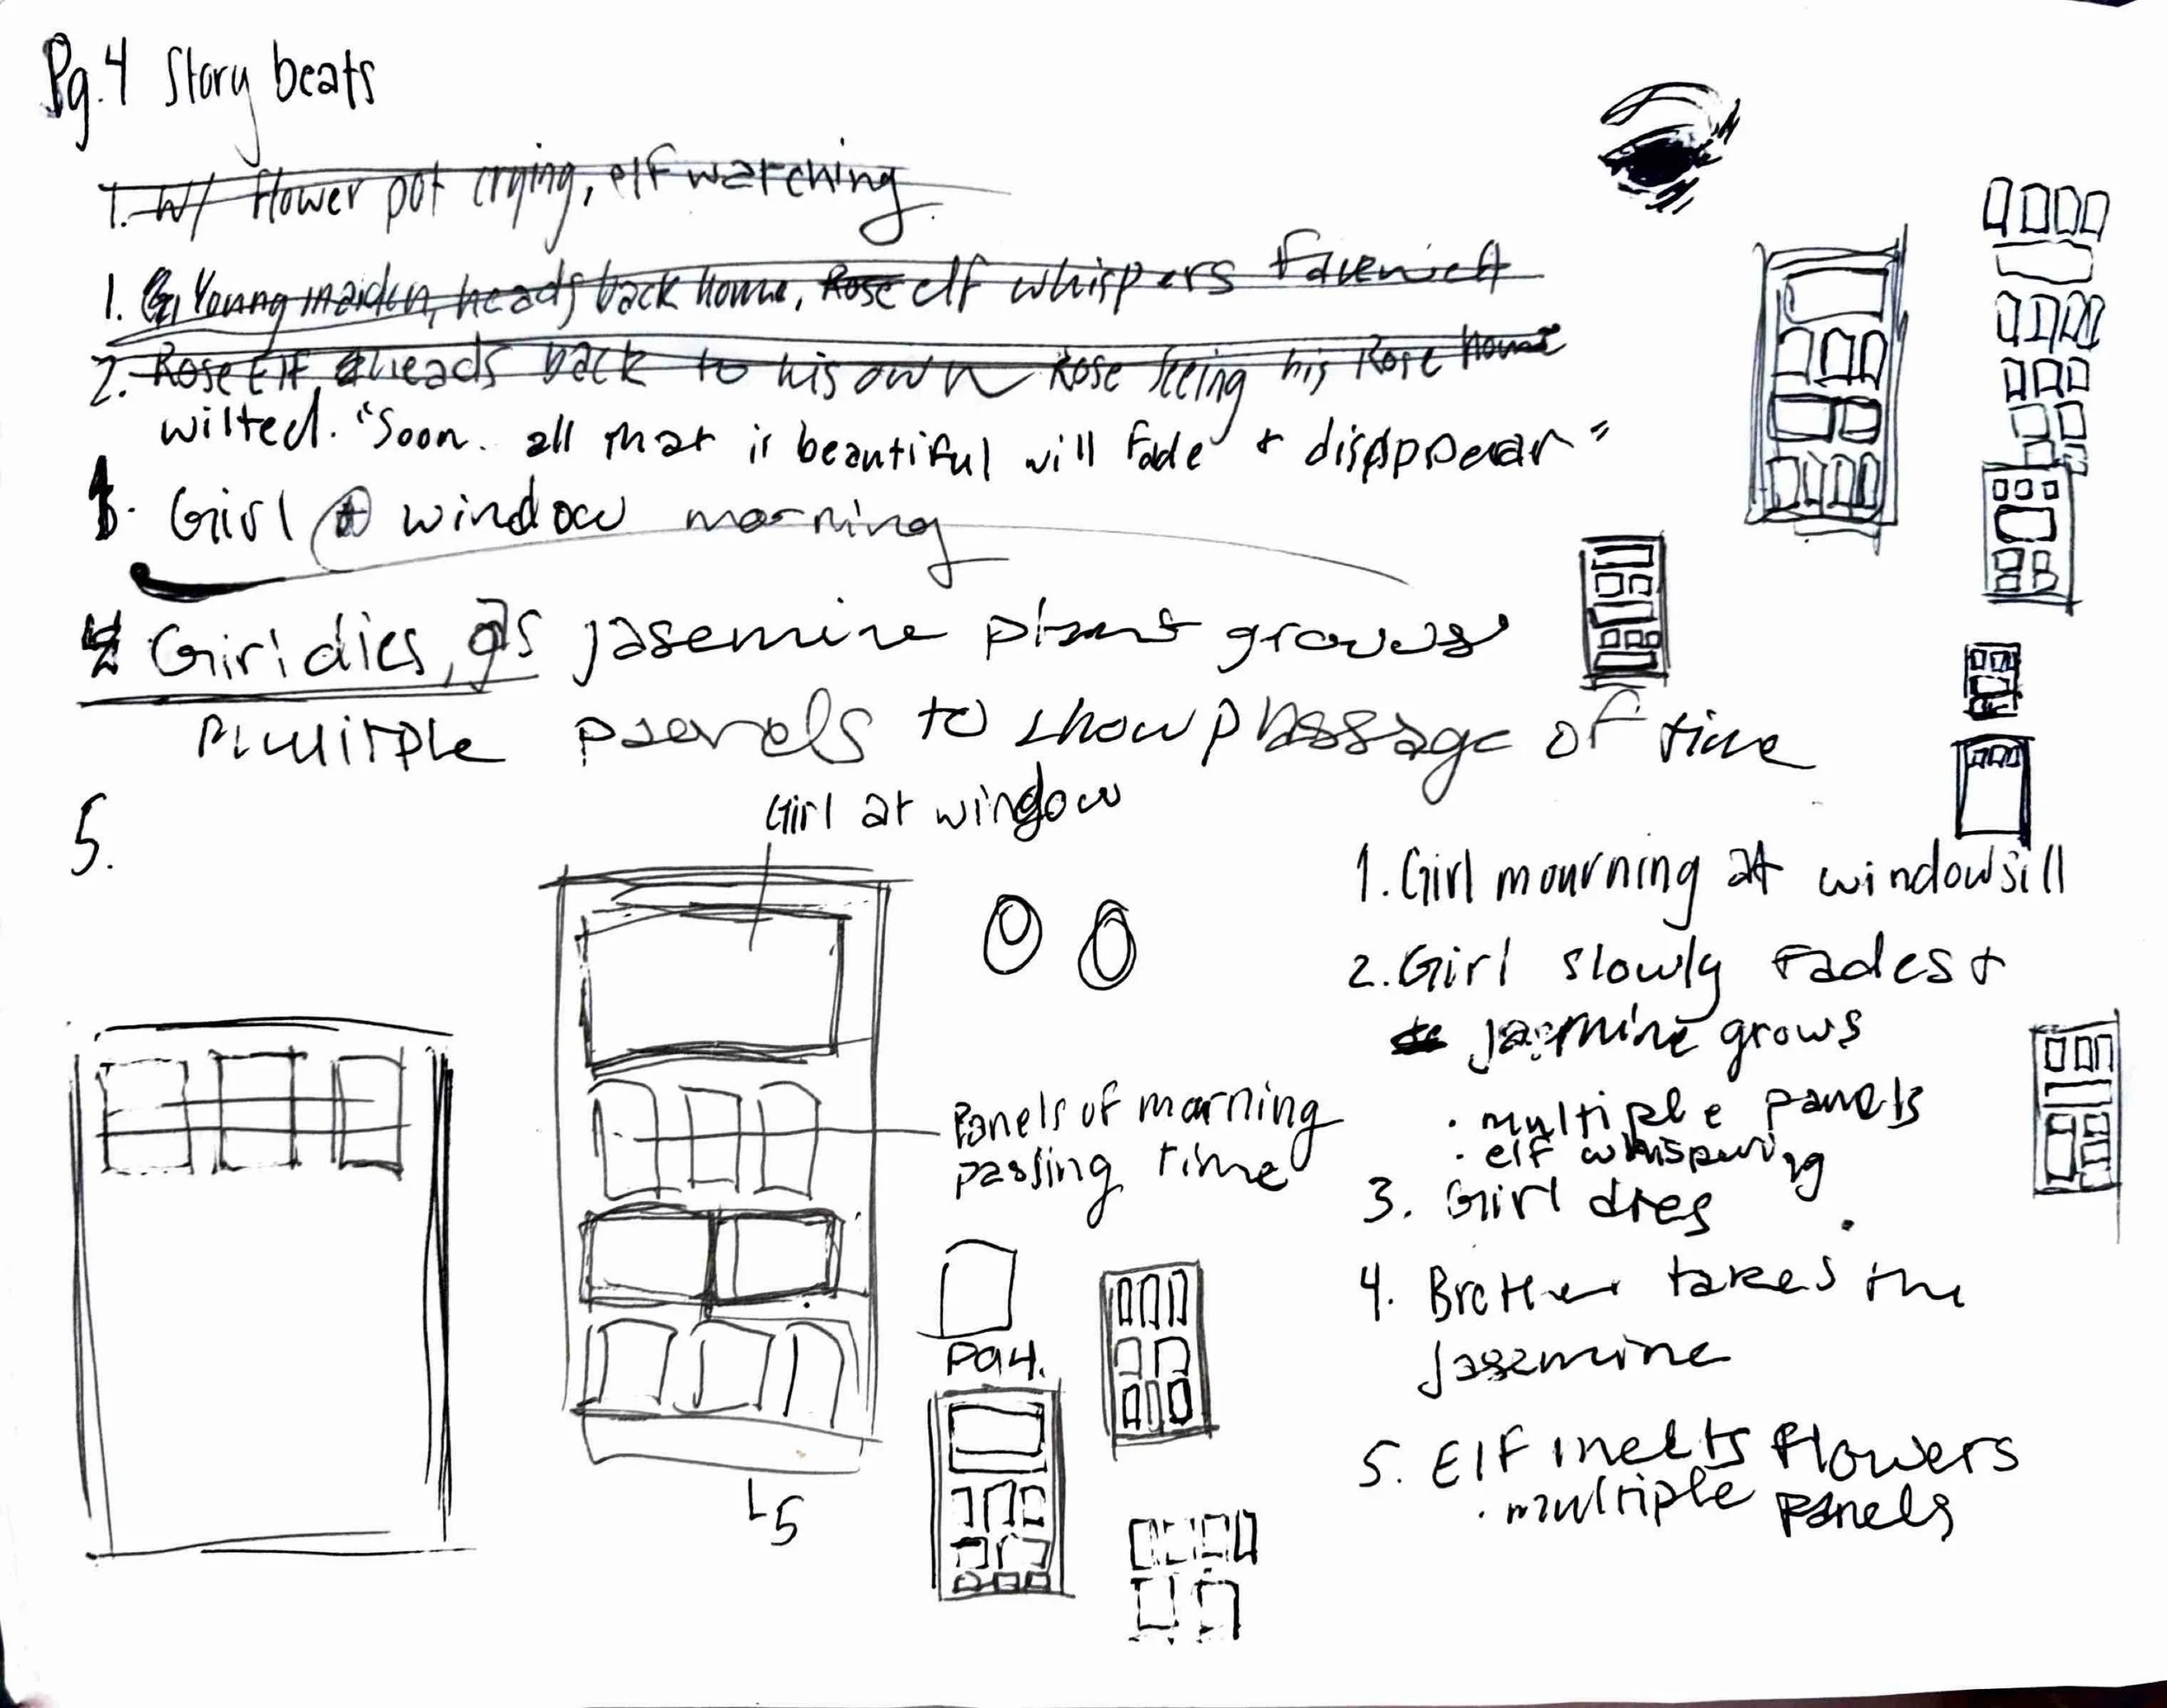 Pg.4 Story beats
1. W/ flower pot crying, elf watching.
1. Young maiden, heads back home, Rose elf whispers farewell
2. Rose Elf heads back to his own Rose seeing his Rose home
wilted. "Soon. all that is beautiful will fade + disappear"
3. Girl @ window morning
4 Girl dies, as jasemine plant grows
Mulitple panels to show passage of time
5.
Girl at window
Panels of morning
passing time
L5
Pg4.
1. Girl mourning at windowsill
2. Girl slowly fades +
jasmine grows
· multiple panels
· elf whispering
3. Girl dies
4. Brother takes the
Jasemine
5. Elf meets flowers
· multiple panels